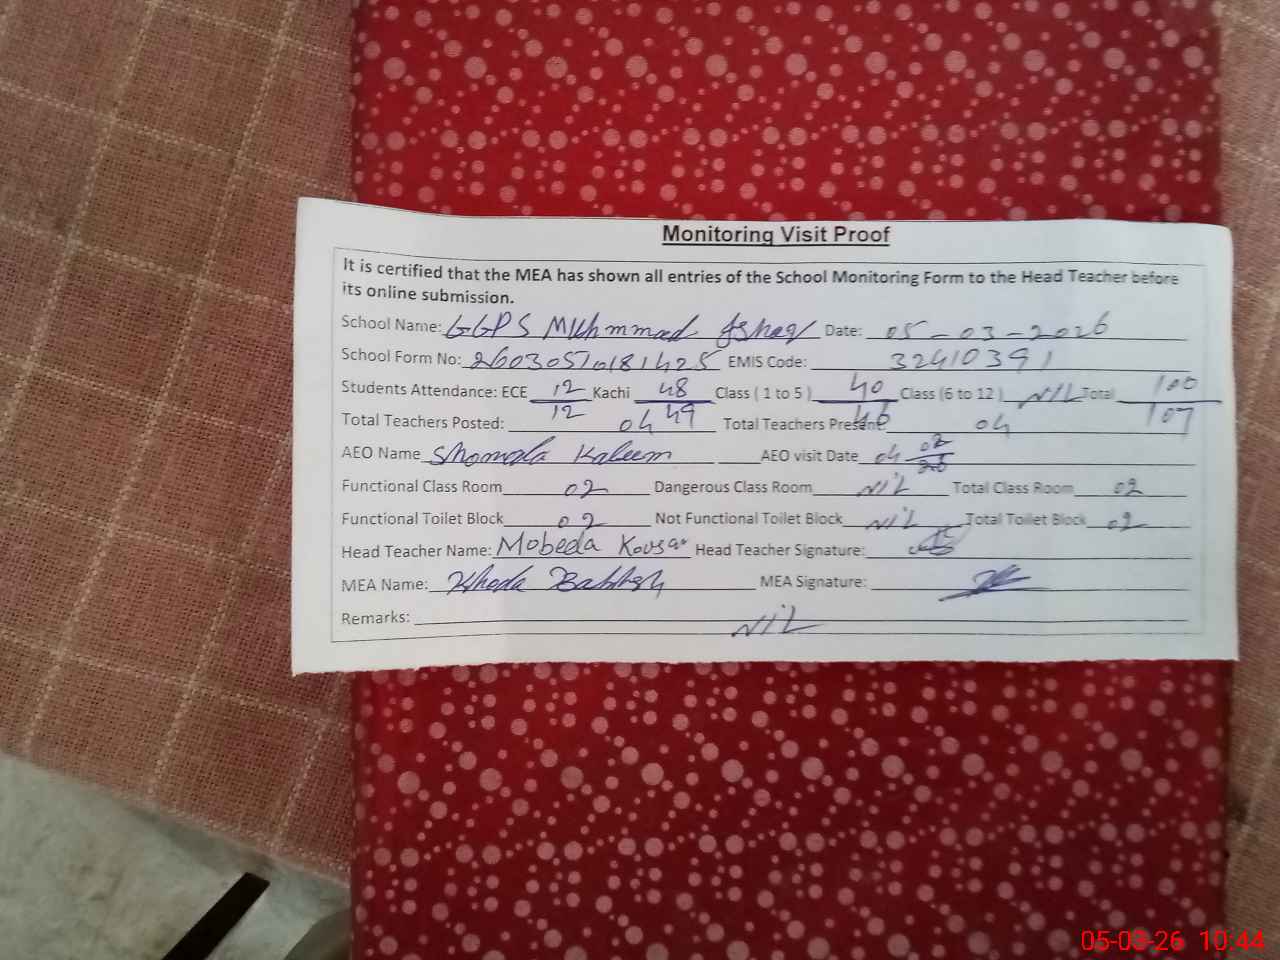 Monitoring Visit Proof
It is certified that the MEA has shown all entries of the School Monitoring Form to the Head Teacher before
its online submission.
School Name: GGPS Muhmmad Ishaq Date: 05-03-2026
School Form No: EMIS Code: 32410391
Students Attendance: ECE 12/12 Kachi 48/49 Class ( 1 to 5 ) 40/46 Class (6 to 12 ) NIL Total 100/107
Total Teachers Posted: 04 Total Teachers Present 04
AEO Name Kaleem AEO visit Date 04 02/26
Functional Class Room 02 Dangerous Class Room NIL Total Class Room 02
Functional Toilet Block 02 Not Functional Toilet Block NIL Total Toilet Block 02
Head Teacher Name: Mobeda Kousar Head Teacher Signature:
MEA Name: MEA Signature:
Remarks: NIL
05-03-26 10:44